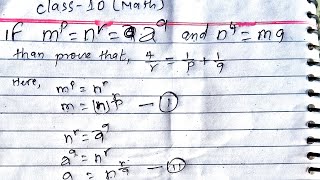 class-10 (Math)
If m^p = n^r = a^q and n^4 = mq
than prove that, 4/r = 1/p + 1/q
Here, m^p = n^r
m = (n)^r/p — (I)
n^r = a^q
a^q = n^r
a = n^r/q — (II)